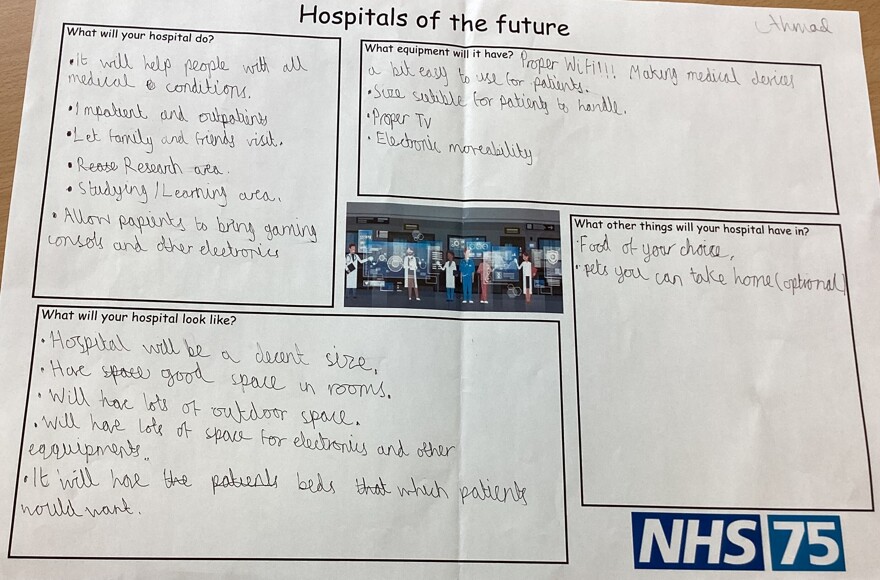 Hospitals of the future
Ahmad
What will your hospital do?
•It will help people with all
medical conditions.
•Impatient and outpatients
•Let family and friends visit.
•Research area.
•Studying/Learning area.
•Allow papients to bring gaming
consols and other electronics
What equipment will it have? Proper WiFi!!! Making medical devices
a bit easy to use for patients.
•Size suitible for patients to handle.
•Proper TV
•Electronic moreability
What other things will your hospital have in?
•Food of your choice,
•pets you can take home(optional)
What will your hospital look like?
•Hospital will be a decent size.
•Have space good space in rooms.
•Will have lots of outdoor space.
•Will have lots of space for electronics and other
eqquipments..
•It will have the patients beds that which patients
would want.
NHS 75